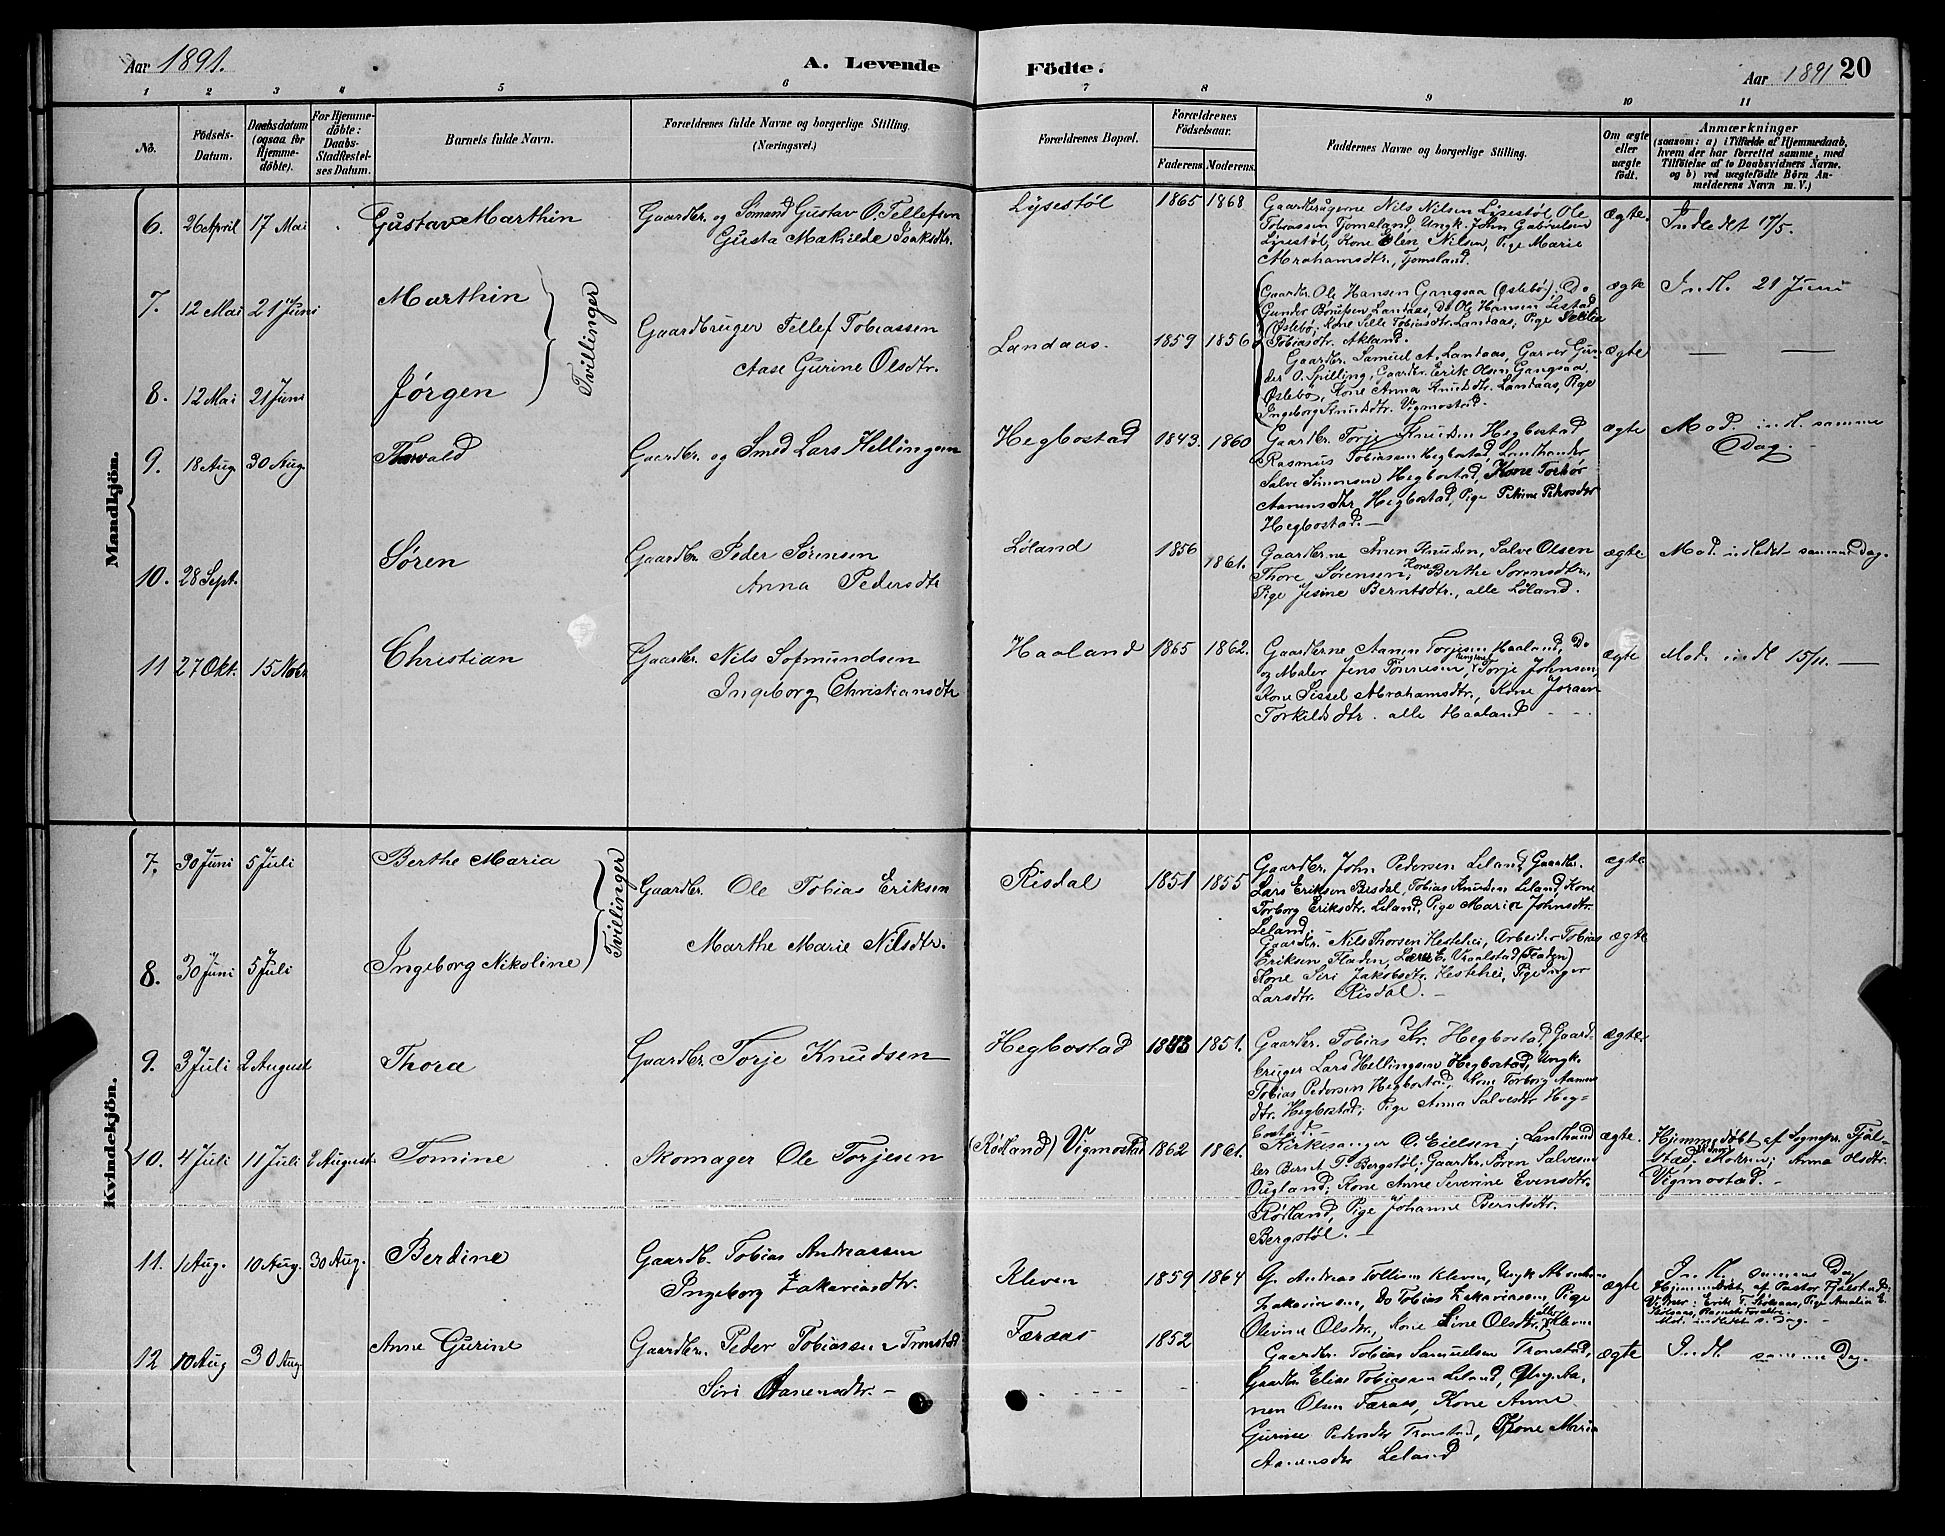 Aar 1891.
A. Levende Födte.
Aar 1891
20
1 2 3 4 5 6 7 8 9 10 11
No.
Födsels-
Datum.
Daabsdatum
(ogsaa for
Hjemme-
döbte).
For Hjemme-
döbte:
Daabs-
Stadfæstel-
ses Datum.
Barnets fulde Navn.
Forældrenes fulde Navne og borgerlige Stilling.
(Næringsvei.)
Forældrenes Bopæl.
Forældrenes
Födselsaar.
Faderens Moderens.
Faddernes Navne og borgerlige Stilling.
Om ægte
eller
uægte
födt.
Anmærkninger
(saasom: a) i Tilfælde af Hjemmedaab,
hvem der har forrettet samme, med
Tilföielse af to Daabsvidners Navne,
og b) ved uægtefödte Börn An-
melderens Navn m. V.)
Mandkjön.
6. 26 April 17 Mai
Gustav Marthin
Gaardbr. og Sömand Gustav O. Tellefsen
Gusta Mathilde Isaksdtr.
Lysestøl
1865 1868
Gaardbrugerne Nils Nilsen Lysestøl, Ole
Tobiassen Tjomsland, Ungk. John Gabrielsen
Lysestøl, Kone Elen Nilsen, Pige Marie
Abrahamsdtr., Tjomsland.
ægte.
Indledet 17/5.
7. 12 Mai 21 Juni
Marthin
8. 12 Mai 21 Juni
Jørgen
Tvillinger
Gaardbruger Tellef Tobiassen
Aase Gurine Olsdtr.
Landaas.
1859 1856
Gaardbr. Ole Hansen Gangsaa (Øslebö), Do
Gunder Landaas, Do Ole Hansen Lestad
Øslebö, Kone Sille Tobiasdtr. Landaas, Pige
Tobiasdtr. Akland.
Gaardbr. Samuel A. Landaas, Garver Gun-
der O. Spilling, Gaardbr. Erik Olsen Gangsaa,
Øslebø, Kone Anna Knudsdtr. Landaas, Pige
Ingeborg Knudsdtr. Vigmostad.
ægte
Indl. 21 Juni
ægte
— —
9. 18 Aug. 30 Aug.
Thorvald
Gaardbr. og Smed Lars Hellingsen
Hegbostad
1843. 1860
Gaardbr. Torje Knudsen Hegbostad
Rasmus Tobiassen Hegbostad, Landhandler
Salve Simonsen Hegbostad, Kone Torbør
Aanensdtr Hegbostad, Pige Petrine Pedersdtr
Hegbostad.—
ægte
Mod. indl. samme
Dag.
10. 28 Sept.
Søren
Gaardbr. Peder Sørensen
Anna Pedersdtr
Løland
1856 1861.
Gaardbr.ne Anen Knudsen, Salve Olsen
Thore Sørensen, Kone Berthe Sørensdtr.,
Pige Jesine Berntsdtr., alle Løland.
ægte
Mod. indledet samme dag.
11 27 Okt. 15 Nobr
Christian
Gaardbr. Nils Sofmundsen
Ingeborg Christiansdtr
Haaland
1865 1862.
Gaardbrne Aanen Torjesen Haaland, Do
og Maler Jens Tønnesen, Ungkarl Torje Johnsen,
Kone Sissel Abrahamsdtr., Kone Jøraen
Torkildsdtr. alle Haaland
ægte
Mod. indl 15/11.—
Kvindekjön.
7. 30 Juni 5 Juli
Berthe Maria
8. 30 Juni 5 Juli
Ingeborg Nikoline
Tvillinger
Gaardbr. Ole Tobias Eriksen
Marthe Marie Nilsdtr.
Risdal
1851 1855
Gaardbr. John Pedersen Leland, Gaardbr.
Lars Eriksen Risdal, Tobias Knudsen Leland, Kone
Torborg Eriksdtr. Leland, Pige Maria Johnsdtr.
Leland.—
Gaardbr. Nils Thorsen Hestehei, Arbeider Tobias
Eriksen Fladen, Lars E. Vraalstad (Fladen)
Kone Siri Jakobsdtr. Hestehei, Pige Inger
Larsdtr. Risdal.—
ægte
ægte
9. 3 Juli 2 August
Thora
Gaardbr. Torje Knudsen
Hegbostad
1843 1851.
Gaardbr. Tobias Kr. Hegbostad, Gaard-
bruger Lars Hellingsen Hegbostad, Ungk.
Tobias Pedersen Hegbostad, Kone Torborg Aanens
dtr. Hegbostad; Pige Anna Salvesdtr. Heg=
bostad.—
ægte
10. 4 Juli 11 Juli 2 August
Tomine
Skomager Ole Torjesen
(Rørland) Vigmostad
1862 1861.
Kirkesanger O. Eielsen; Landhand
ler Bernt T. Bergstøl; Gaardbr. Søren Salvesen
Øugland; Kone Anne Severine Evensdtr.
Rørland, Pige Johanne Berntsdtr.
Bergstøl.—
ægte.
Hjemmedøbt af Sognepr. Fjöl-
stad, Vidner: Moderen; Anna Olsdtr.
Vigmostad.—
11. 1 Aug. 10 Aug. 30 Aug.
Berdine
Gaardb. Tobias Andreassen
Ingeborg Zakariasdtr.
Kleven
1859 1864
G. Andreas Tollisen Kleven, Ungk Abraham
Zakariassen, Do Tobias Zakariassen, Pige
Olevine Olsdtr., Kone Line Olsdtr, alle Kleven
ægte
Indl. samme Dag
Hjemmedøbt af Pastor Fjölstad,
Vidner: Erik T. Stölsaas, Pige Amalia E.
Stölsaas, Barnets Forældre.
Mod. indledet s. Dag.
12 10 Aug 30 Aug.
Anne Gurine
Gaardbr. Peder Tobiassen Tronstad
Siri Aanensdtr.—
Færaas
1852
Gaardbr. Tobias Samuelsen Tronstad,
Gaardbr. Elias Tobiassen Leland, Ung. Aa-
nen Olsen Færaas, Kone Anne
Gurine Pedersdtr Tronstad, Kone Maria
Aanensdtr Leland
ægte
Indl. samme Dag.